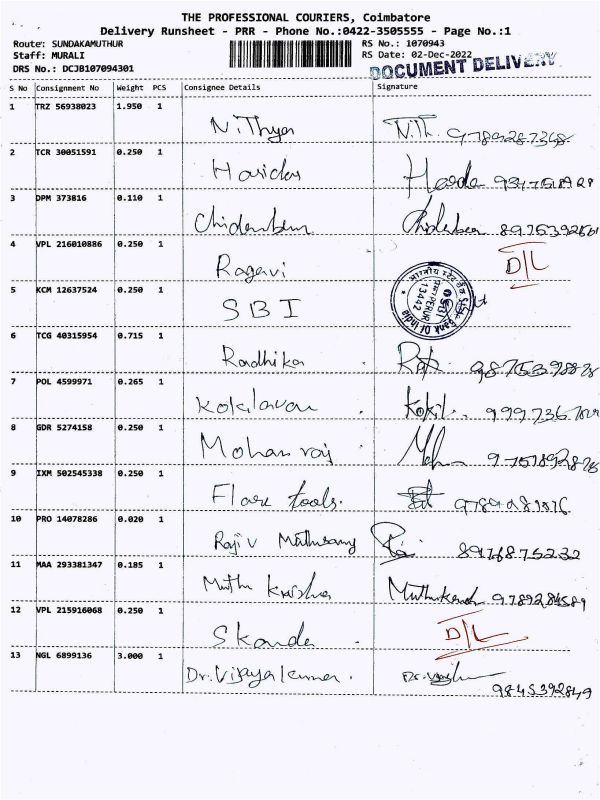 THE PROFESSIONAL COURIERS, Coimbatore
Delivery Runsheet - PRR - Phone No.:0422-3505555 - Page No.:1
Route: SUNDAKAMUTHUR
Staff: MURALI
DRS No.: DCJB107094301
RS No.: 1070943
RS Date: 02-Dec-2022
DOCUMENT DELIVERY
S No Consignment No Weight PCS Consignee Details Signature
1 TRZ 56938023 1.950 1 Nithya N.Th.
2 TCR 30051591 0.250 1 Haridas
3 DPM 373816 0.110 1 Chidambaram
4 VPL 216010886 0.250 1 Ragavi D/L
5 KCM 12637524 0.250 1 SBI
State Bank Of India
PERUR
13442
6 TCG 40315954 0.715 1 Radhika
7 POL 4599971 0.265 1 Kokilavani Kokil
8 GDR 5274158 0.250 1 Mohan raj
9 IXM 502545338 0.250 1 Flare tools.
10 PRO 14078286 0.020 1 Rajiv Muthusamy 8976875232
11 MAA 293381347 0.185 1 Muthu Krishna
12 VPL 215916068 0.250 1 Skanda D/L
13 NGL 6899136 3.000 1 Dr. Vijaya kumar.
9845392849